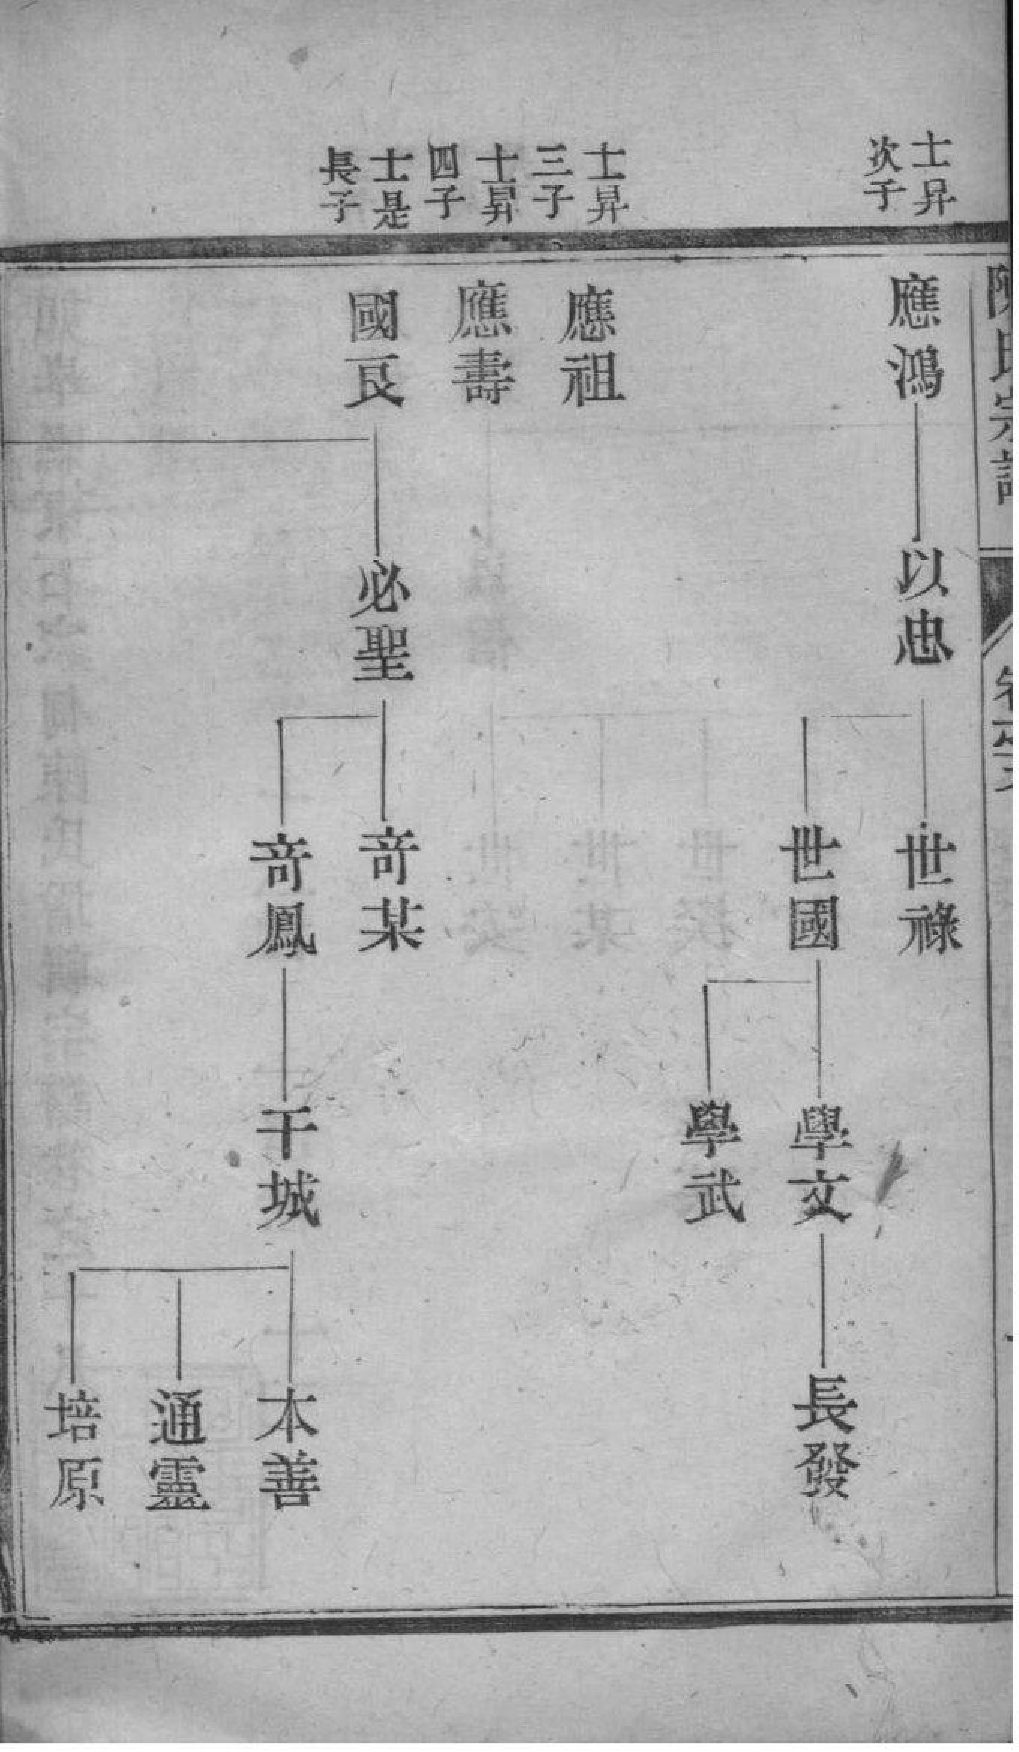 陳氏宗譜
卷之
士昇
次子
士昇
三子
士昇
四子
士是
長子
應鴻
應祖
應壽
國良
以忠
必聖
世祿
世國
竒某
竒鳳
學文
學武
干城
長發
本善
通靈
培原